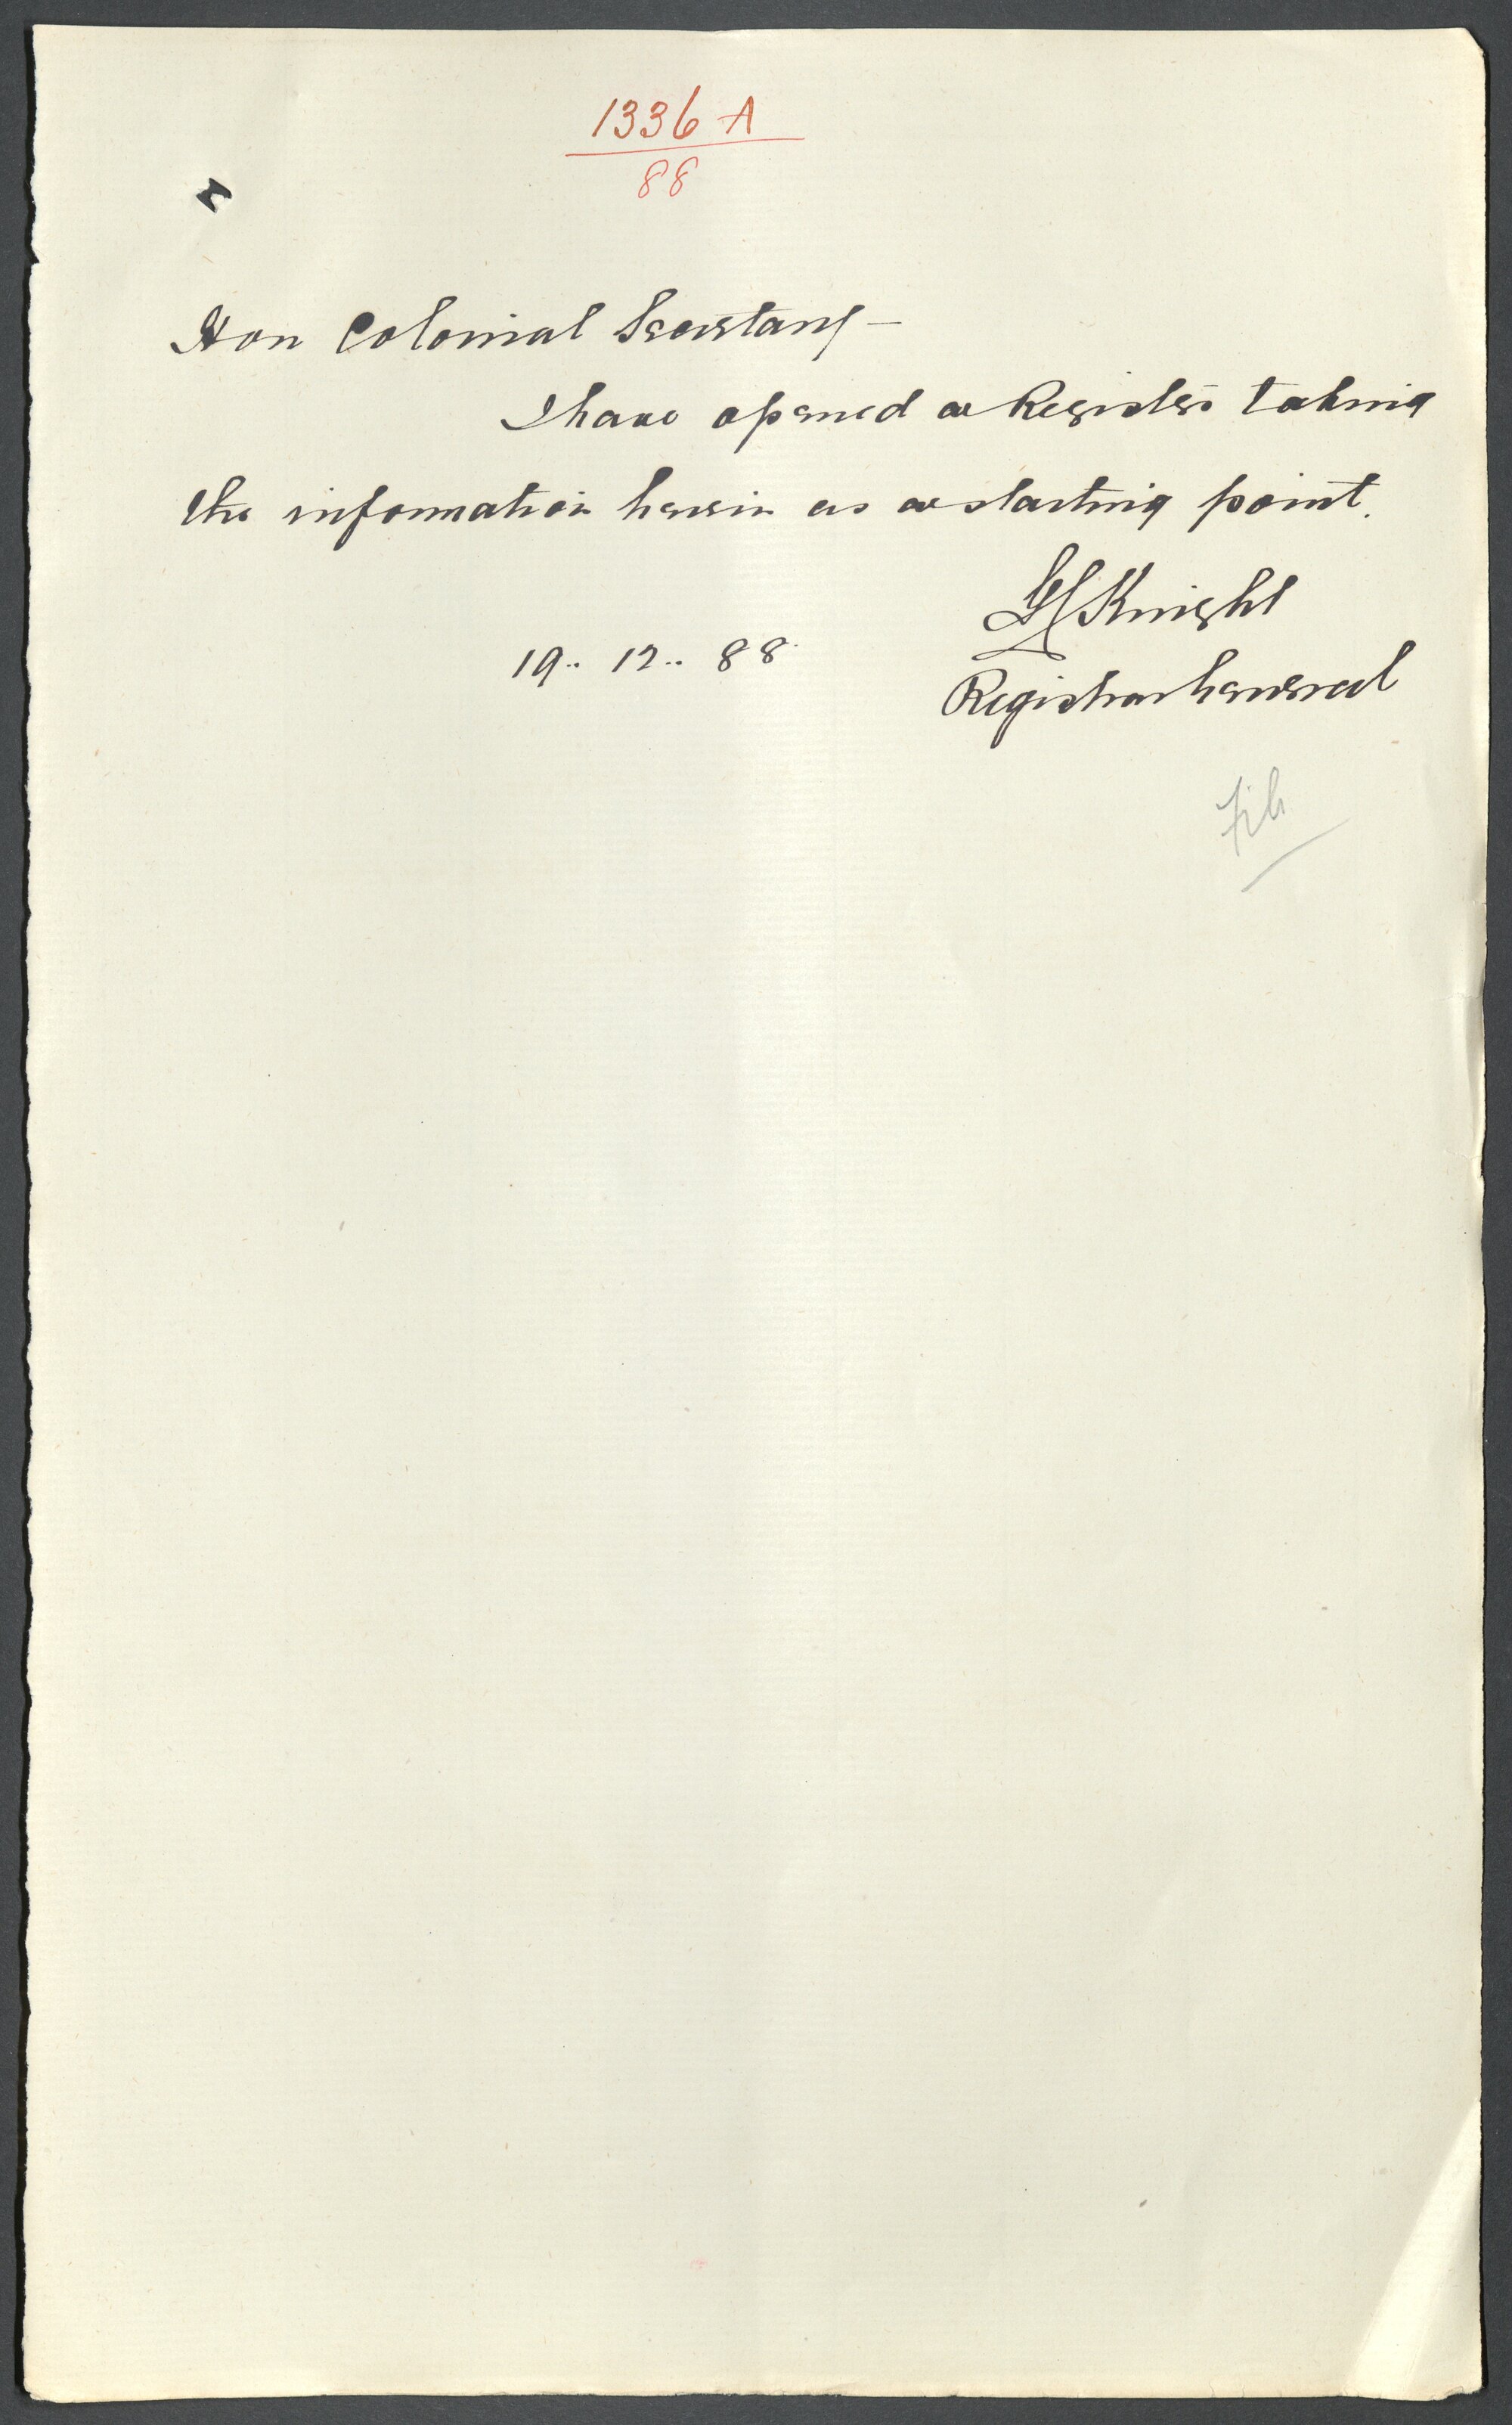 1336 A
88
Hon Colonial Secretary —
I have opened a Register taking
the information herein as a starting point.
Knight
19.. 12.. 88
Registrar General
File